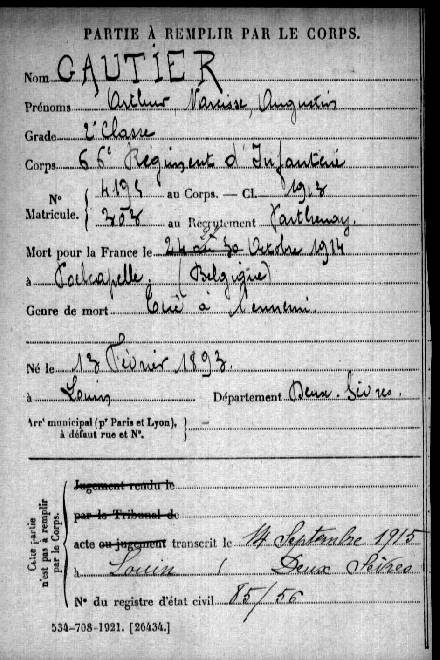 PARTIE À REMPLIR PAR LE CORPS.
Nom GAUTIER
Prénoms Arthur, Narcisse, Augustin
Grade 2e Classe
Corps 66e Régiment d'Infanterie
N° Matricule. { 4195 au Corps. — Cl. 1913
303 au Recrutement Parthenay.
Mort pour la France le 24 au 30 Octobre 1914
à Poelcapelle. (Belgique)
Genre de mort Tué à l'ennemi.
Né le 13 Février 1893.
à Louin Département Deux-Sèvres.
Arrt municipal (pr Paris et Lyon), à défaut rue et N°. { –
Cette partie n'est pas à remplir par le Corps.
Jugement rendu le
par le Tribunal de
acte ou jugement transcrit le 14 Septembre 1915
à Louin ( Deux Sèvres
N° du registre d'état civil 85/56
534-708-1921. [26434.]